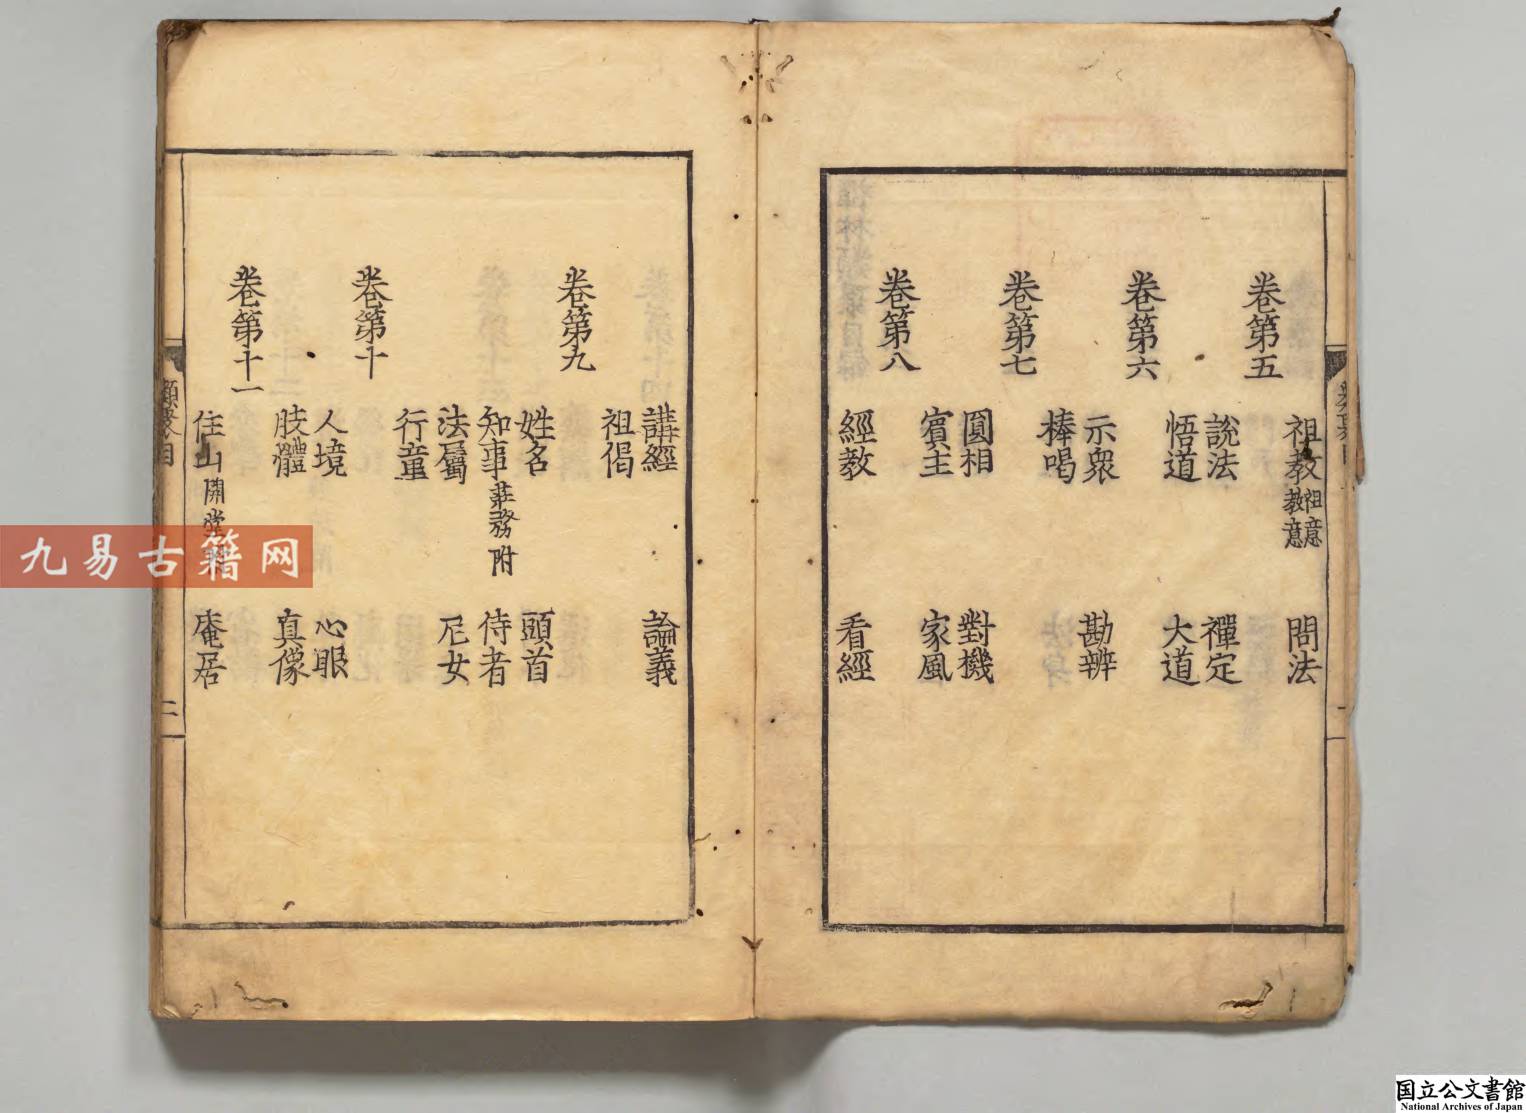 祖教祖意教意 問法
卷第五
說法 禪定
悟道 大道
卷第六
示衆 勘辨
棒喝
卷第七
圓相 對機
賓主 家風
卷第八
經教 看經
講經 論義
祖偈
卷第九
姓名 頭首
知事莊務附 侍者
法屬 尼女
行童
卷第十
人境 心眼
肢體 真像
卷第十一
住山開堂 庵居
二
九易古籍网
国立公文書館
National Archives of Japan